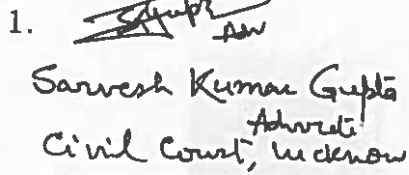 1. SKGupta
Adv
Sarvesh Kumar Gupta
Advocate
Civil Court, Lucknow